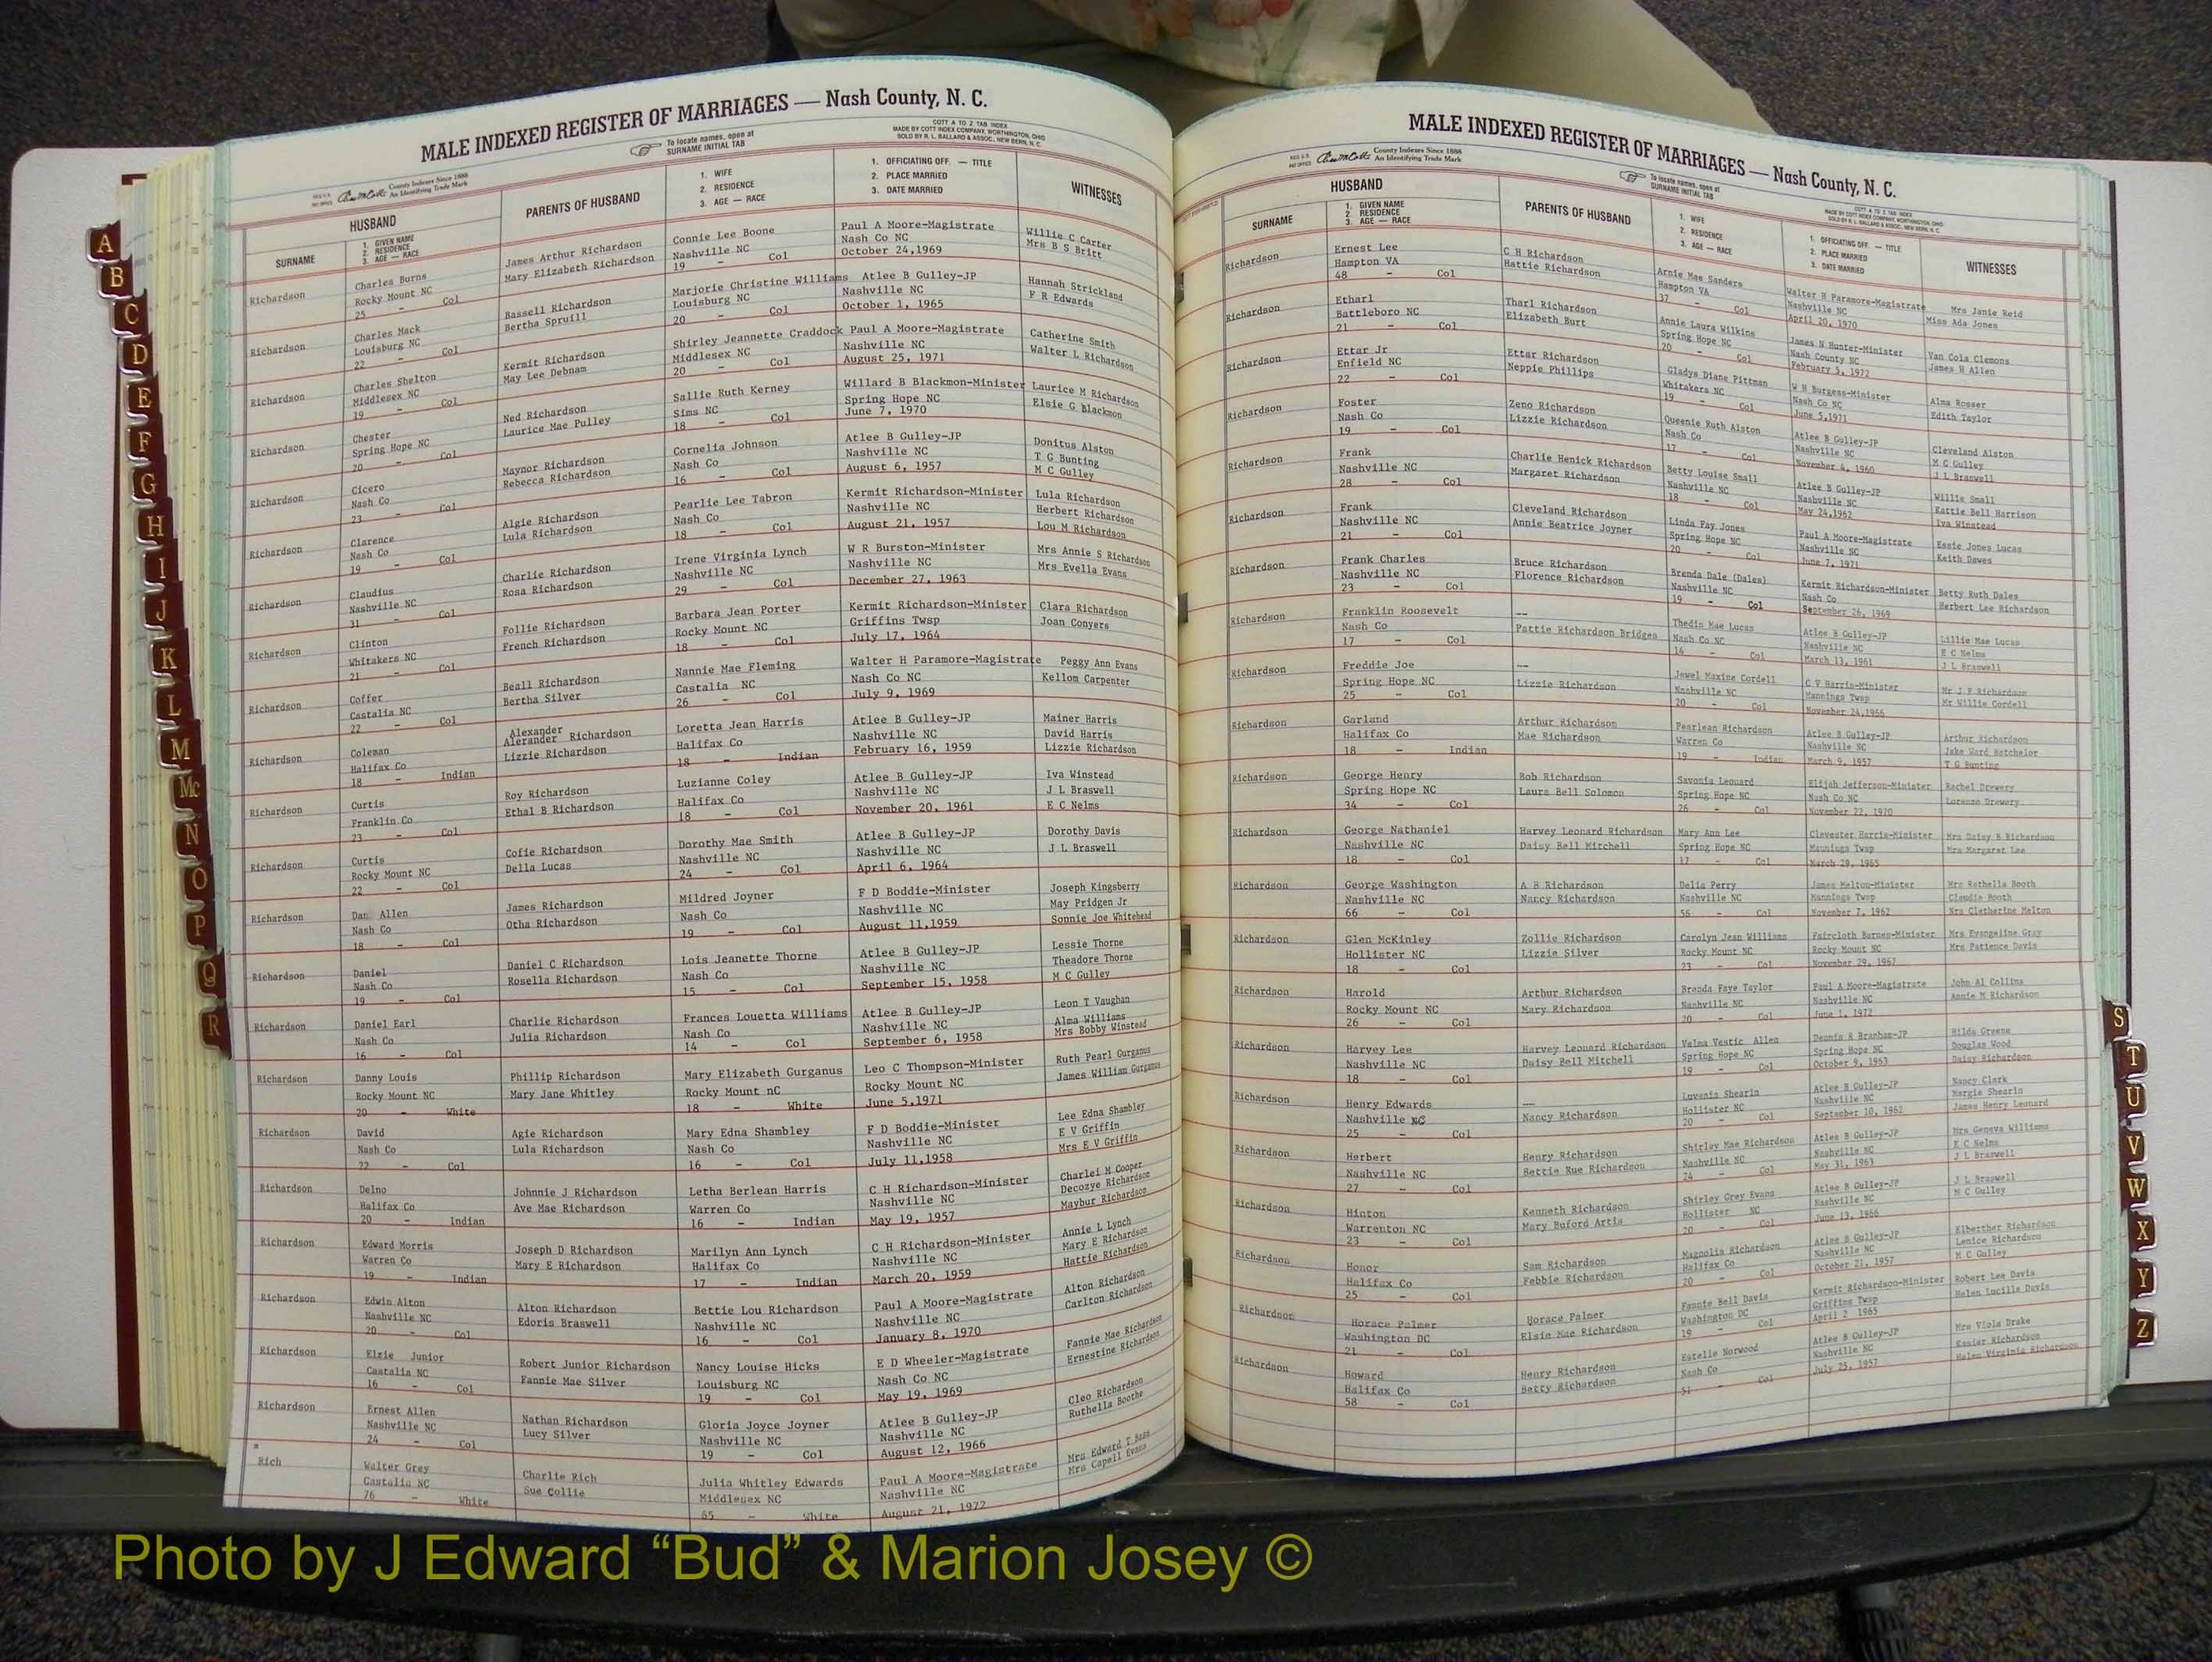 MALE INDEXED REGISTER OF MARRIAGES — Nash County, N. C.
To locate names, open at
SURNAME INITIAL TAB
COTT A TO Z TAB INDEX
MADE BY COTT INDEX COMPANY, WORTHINGTON, OHIO
SOLD BY R. L. BALLARD & ASSOC., NEW BERN, N. C.
County Indexes Since 1888
An Identifying Trade Mark
HUSBAND
SURNAME
1. GIVEN NAME
2. RESIDENCE
3. AGE — RACE
PARENTS OF HUSBAND
1. WIFE
2. RESIDENCE
3. AGE — RACE
1. OFFICIATING OFF. — TITLE
2. PLACE MARRIED
3. DATE MARRIED
WITNESSES
Richardson Charles Burns James Arthur Richardson Connie Lee Boone Paul A Moore-Magistrate Willie C Carter
Rocky Mount NC Mary Elizabeth Richardson Nashville NC Nash Co NC Mrs B S Britt
25 - Col 19 - Col October 24,1969
Richardson Charles Mack Bassell Richardson Marjorie Christine Williams Atlee B Gulley-JP Hannah Strickland
Louisburg NC Bertha Spruill Louisburg NC Nashville NC F R Edwards
22 - Col 20 - Col October 1, 1965
Richardson Charles Shelton Kermit Richardson Shirley Jeannette Graddock Paul A Moore-Magistrate Catherine Smith
Middlesex NC May Lee Debnam Middlesex NC Nashville NC Walter L Richardson
19 - Col 20 - Col August 25, 1971
Richardson Chester Ned Richardson Sallie Ruth Kerney Willard B Blackmon-Minister Laurice M Richardson
Spring Hope NC Laurice Mae Pulley Sims NC Spring Hope NC Elsie G Blackmon
20 - Col 18 - Col June 7, 1970
Richardson Cicero Maynor Richardson Cornelia Johnson Atlee B Gulley-JP Donitus Alston
Nash Co Rebecca Richardson Nash Co Nashville NC T G Bunting
23 - Col 16 - Col August 6, 1957 M C Gulley
Richardson Clarence Algie Richardson Pearlie Lee Tabron Kermit Richardson-Minister Lula Richardson
Nash Co Lula Richardson Nash Co Nashville NC Herbert Richardson
19 - Col 18 - Col August 21, 1957 Lou M Richardson
Richardson Claudius Charlie Richardson Irene Virginia Lynch W R Burston-Minister Mrs Annie S Richardson
Nashville NC Rosa Richardson Nashville NC Nashville NC Mrs Evella Evans
31 - Col 29 - Col December 27, 1963
Richardson Clinton Follie Richardson Barbara Jean Porter Kermit Richardson-Minister Clara Richardson
Whitakers NC French Richardson Rocky Mount NC Griffins Twsp Joan Conyers
21 - Col 18 - Col July 17, 1964
Richardson Coffer Beall Richardson Nannie Mae Fleming Walter H Paramore-Magistrate Peggy Ann Evans
Castalia NC Bertha Silver Castalia NC Nash Co NC Kellom Carpenter
22 - Col 26 - Col July 9, 1969
Richardson Coleman Alexander Alerander Richardson Loretta Jean Harris Atlee B Gulley-JP Mainer Harris
Halifax Co Lizzie Richardson Halifax Co Nashville NC David Harris
18 - Indian 18 - Indian February 16, 1959 Lizzie Richardson
Richardson Curtis Roy Richardson Luzianne Coley Atlee B Gulley-JP Iva Winstead
Franklin Co Ethal B Richardson Halifax Co Nashville NC J L Braswell
23 - Col 18 - Col November 20, 1961 E C Nelms
Richardson Curtis Cofie Richardson Dorothy Mae Smith Atlee B Gulley-JP Dorothy Davis
Rocky Mount NC Della Lucas Nashville NC Nashville NC J L Braswell
22 - Col 24 - Col April 6, 1964
Richardson Dan Allen James Richardson Mildred Joyner F D Boddie-Minister Joseph Kingsberry
Nash Co Otha Richardson Nash Co Nashville NC May Pridgen Jr
18 - Col 19 - Col August 11,1959 Sonnie Joe Whitehead
Richardson Daniel Daniel C Richardson Lois Jeanette Thorne Atlee B Gulley-JP Lessie Thorne
Nash Co Rosella Richardson Nash Co Nashville NC Theadore Thorne
19 - Col 15 - Col September 15, 1958 M C Gulley
Richardson Daniel Earl Charlie Richardson Frances Louetta Williams Atlee B Gulley-JP Leon T Vaughan
Nash Co Julia Richardson Nash Co Nashville NC Alma Williams
16 - Col 14 - Col September 6, 1958 Mrs Bobby Winstead
Richardson Danny Louis Phillip Richardson Mary Elizabeth Gurganus Leo C Thompson-Minister Ruth Pearl Gurganus
Rocky Mount NC Mary Jane Whitley Rocky Mount nC Rocky Mount NC James William Gurganus
20 - White 18 - White June 5,1971
Richardson David Agie Richardson Mary Edna Shambley F D Boddie-Minister Lee Edna Shambley
Nash Co Lula Richardson Nash Co Nashville NC E V Griffin
22 - Col 16 - Col July 11,1958 Mrs E V Griffin
Richardson Delno Johnnie J Richardson Letha Berlean Harris C H Richardson-Minister Charlei M Cooper
Halifax Co Ave Mae Richardson Warren Co Nashville NC Decozye Richardson
20 - Indian 16 - Indian May 19, 1957 Maybur Richardson
Richardson Edward Morris Joseph D Richardson Marilyn Ann Lynch C H Richardson-Minister Annie L Lynch
Warren Co Mary E Richardson Halifax Co Nashville NC Mary E Richardson
19 - Indian 17 - Indian March 20, 1959 Hattie Richardson
Richardson Edwin Alton Alton Richardson Bettie Lou Richardson Paul A Moore-Magistrate Alton Richardson
Nashville NC Edoris Braswell Nashville NC Nashville NC Carlton Richardson
20 - Col 16 - Col January 8, 1970
Richardson Elzie Junior Robert Junior Richardson Nancy Louise Hicks E D Wheeler-Magistrate Fannie Mae Richardson
Castalia NC Fannie Mae Silver Louisburg NC Nash Co NC Ernestine Richardson
16 - Col 19 - Col May 19, 1969
Richardson Ernest Allen Nathan Richardson Gloria Joyce Joyner Atlee B Gulley-JP Cleo Richardson
Nashville NC Lucy Silver Nashville NC Nashville NC Ruthella Boothe
24 - Col 19 - Col August 12, 1966
Rich Walter Grey Charlie Rich Julia Whitley Edwards Paul A Moore-Magistrate Mrs Edward T Bass
Castalia NC Sue Collie Middlesex NC Nashville NC Mrs Capell Evans
76 - White 65 - White August 21, 1972
MALE INDEXED REGISTER OF MARRIAGES — Nash County, N. C.
County Indexes Since 1888
An Identifying Trade Mark
To locate names, open at
SURNAME INITIAL TAB
COTT A TO Z TAB INDEX
MADE BY COTT INDEX COMPANY, WORTHINGTON, OHIO
SOLD BY R. L. BALLARD & ASSOC., NEW BERN, N. C.
HUSBAND
SURNAME
1. GIVEN NAME
2. RESIDENCE
3. AGE — RACE
PARENTS OF HUSBAND
1. WIFE
2. RESIDENCE
3. AGE — RACE
1. OFFICIATING OFF. — TITLE
2. PLACE MARRIED
3. DATE MARRIED
WITNESSES
Richardson Ernest Lee C H Richardson Arnie Mae Sanders Walter H Paramore-Magistrate Mrs Janie Reid
Hampton VA Hattie Richardson Hampton VA Nashville NC Miss Ada Jones
48 - Col 37 - Col April 20, 1970
Richardson Etharl Tharl Richardson Annie Laura Wilkins James N Hunter-Minister Van Cola Clemons
Battleboro NC Elizabeth Burt Spring Hope NC Nash County NC James H Allen
21 - Col 20 - Col February 5, 1972
Richardson Ettar Jr Ettar Richardson Gladys Diane Pittman W H Burgess-Minister Alma Rosser
Enfield NC Neppie Phillips Whitakers NC Nash Co NC Edith Taylor
22 - Col 19 - Col June 5,1971
Richardson Foster Zeno Richardson Queenie Ruth Alston Atlee B Gulley-JP Cleveland Alston
Nash Co Lizzie Richardson Nash Co Nashville NC M C Gulley
19 - Col 17 - Col November 4, 1960 J L Braswell
Richardson Frank Charlie Henick Richardson Betty Louise Small Atlee B Gulley-JP Willie Small
Nashville NC Margaret Richardson Nashville NC Nashville NC Kattie Bell Harrison
28 - Col 18 - Col May 24,1962 Iva Winstead
Richardson Frank Cleveland Richardson Linda Fay Jones Paul A Moore-Magistrate Essie Jones Lucas
Nashville NC Annie Beatrice Joyner Spring Hope NC Nashville NC Keith Dawes
21 - Col 20 - Col June 7, 1971
Richardson Frank Charles Bruce Richardson Brenda Dale (Dales) Kermit Richardson-Minister Betty Ruth Dales
Nashville NC Florence Richardson Nashville NC Nash Co Herbert Lee Richardson
23 - Col 19 - Col September 26, 1969
Richardson Franklin Roosevelt -- Thedis Mae Lucas Atlee B Gulley-JP Lillie Mae Lucas
Nash Co Pattie Richardson Bridges Nash Co NC Nashville NC E C Nelms
17 - Col 14 - Col March 13, 1961 J L Braswell
Richardson Freddie Joe -- Jewel Maxine Cordell C V Harris-Minister Mr J E Richardson
Spring Hope NC Lizzie Richardson Nashville NC Mannings Twsp Mr Willie Cordell
25 - Col 20 - Col November 24,1966
Richardson Garland Arthur Richardson Pearlean Richardson Atlee B Gulley-JP Arthur Richardson
Halifax Co Mae Richardson Warren Co Nashville NC Jake Ward Batchelor
18 - Indian 19 - Indian March 9, 1957 T G Bunting
Richardson George Henry Bob Richardson Savonia Leonard Elijah Jefferson-Minister Rachel Drewery
Spring Hope NC Laura Bell Solomon Spring Hope NC Nash Co NC Lorenzo Drewery
34 - Col 26 - Col November 22, 1970
Richardson George Nathaniel Harvey Leonard Richardson Mary Ann Lee Clevester Harris-Minister Mrs Daisy B Richardson
Nashville NC Daisy Bell Mitchell Spring Hope NC Mannings Twsp Mrs Margaret Lee
18 - Col 17 - Col March 29, 1965
Richardson George Washington A B Richardson Delia Perry James Melton-Minister Mrs Rethella Booth
Nashville NC Nancy Richardson Nashville NC Mannings Twsp Claudie Booth
66 - Col 56 - Col November 7, 1962 Mrs Cletherine Melton
Richardson Glen McKinley Zollie Richardson Carolyn Jean Williams Faircloth Barnes-Minister Mrs Evangeline Gray
Hollister NC Lizzie Silver Rocky Mount NC Rocky Mount NC Mrs Patience Davis
18 - Col 23 - Col November 29, 1967
Richardson Harold Arthur Richardson Brenda Faye Taylor Paul A Moore-Magistrate John Al Collins
Rocky Mount NC Mary Richardson Nashville NC Nashville NC Annie M Richardson
26 - Col 20 - Col June 1, 1972
Richardson Harvey Lee Harvey Leonard Richardson Velma Vestic Allen Dennis R Branham-JP Hilda Greene
Nashville NC Daisy Bell Mitchell Spring Hope NC Spring Hope NC Douglas Wood
18 - Col 19 - Col October 9, 1963 Daisy Richardson
Richardson Henry Edwards -- Luvenia Shearin Atlee B Gulley-JP Nancy Clark
Nashville NC Nancy Richardson Hollister NC Nashville NC Margie Shearin
25 - Col 20 - Col September 10, 1962 James Henry Leonard
Richardson Herbert Henry Richardson Shirley Mae Richardson Atlee B Gulley-JP Mrs Geneva Williams
Nashville NC Bettie Rue Richardson Nashville NC Nashville NC E C Nelms
27 - Col 24 - Col May 31, 1963 J L Braswell
Richardson Hinton Kenneth Richardson Shirley Grey Evans Atlee B Gulley-JP J L Braswell
Warrenton NC Mary Buford Artis Hollister NC Nashville NC M C Gulley
23 - Col 20 - Col June 13, 1966
Richardson Honor Sam Richardson Magnolia Richardson Atlee B Gulley-JP Elberther Richardson
Halifax Co Febbie Richardson Halifax Co Nashville NC Lenice Richardson
25 - Col 20 - Col October 21, 1957 M C Gulley
Richardson Horace Palmer Horace Palmer Fannie Bell Davis Kermit Richardson-Minister Robert Lee Davis
Washington DC Elsie Mae Richardson Washington DC Griffins Twsp Helen Lucille Davis
21 - Col 19 - Col April 2 1965
Richardson Howard Henry Richardson Estelle Norwood Atlee B Gulley-JP Mrs Viola Drake
Halifax Co Betty Richardson Nash Co Nashville NC Kasier Richardson
58 - Col 51 - Col July 25, 1957 Helen Virginia Richardson
A
B
C
D
E
F
G
H
I
J
K
L
M
Mc
N
O
P
Q
R
S
T
U
V
W
X
Y
Z
Photo by J Edward “Bud” & Marion Josey ©